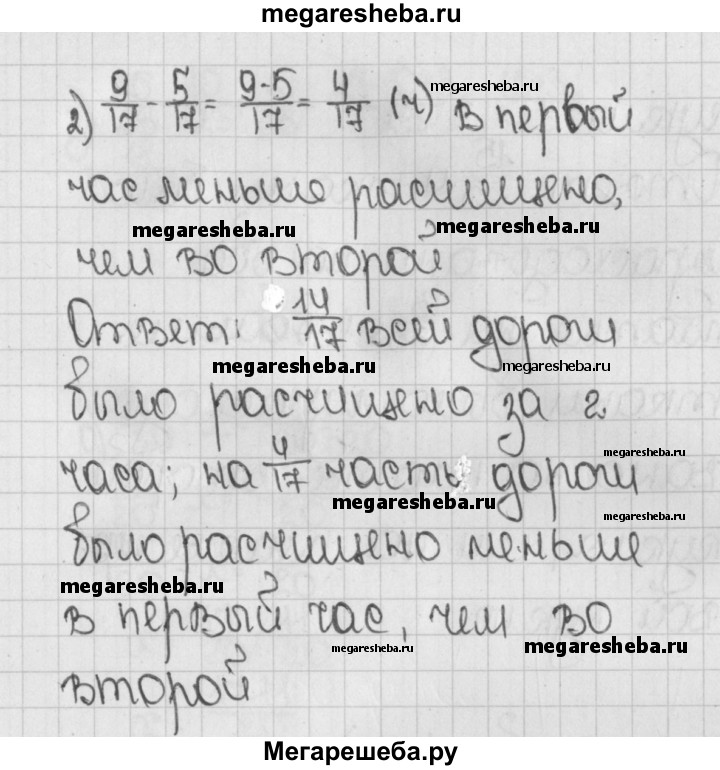 megaresheba.ru
2) 9/17 - 5/17 = 9-5/17 = 4/17 (ч) в первый
megaresheba.ru
час меньше расчищено,
megaresheba.ru megaresheba.ru
чем во второй
Ответ: 14/17 всей дороги
megaresheba.ru megaresheba.ru
было расчищено за 2
megaresheba.ru
часа; на 4/17 часть дороги
megaresheba.ru megaresheba.ru
было расчищено меньше
megaresheba.ru
в первый час, чем во
megaresheba.ru megaresheba.ru
второй
Мегарешеба.ру